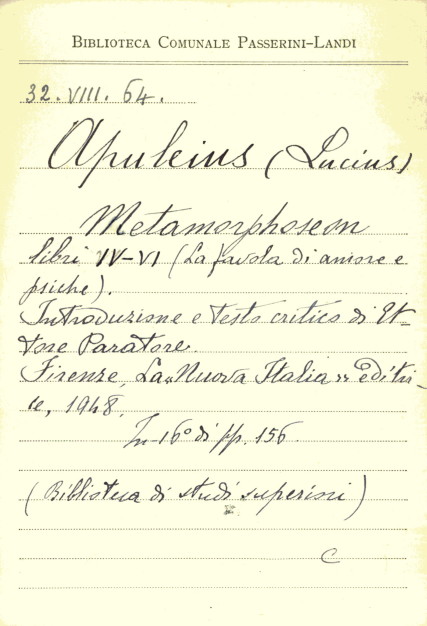 BIBLIOTECA COMUNALE PASSERINI-LANDI
32. VIII. 64.
Apuleius (Lucius)
Metamorphoseon
libri IV-VI (La favola di amore e
psiche).
Introduzione e testo critico di Et-
tore Paratore.
Firenze, La "Nuova Italia" editri-
ce, 1948.
In-16° di pp. 156
(Biblioteca di studi superiori)
C